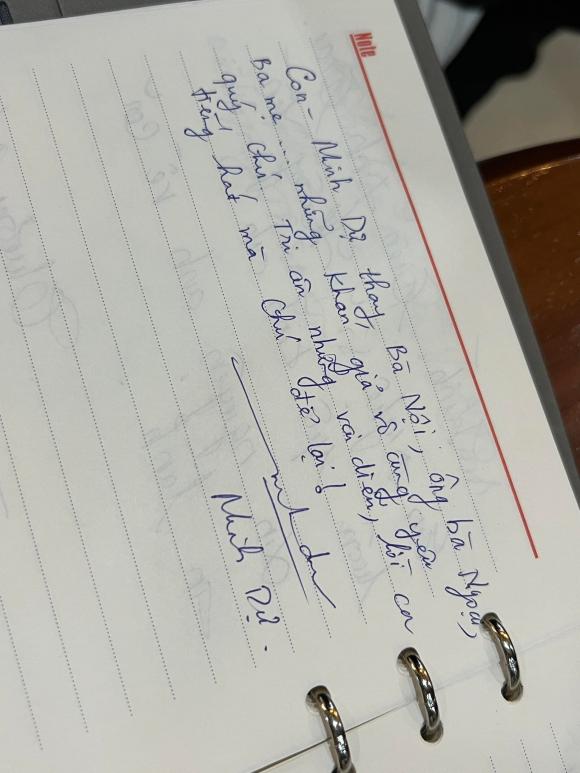 Note
Con - Minh Dự thay, Bà Nội, ông bà Ngoại,
Ba mẹ... những khán giả vô cùng yêu
quý chú Tri ân những vai diễn, lời ca
tiếng hát mà chú để lại!
Minh Dự.